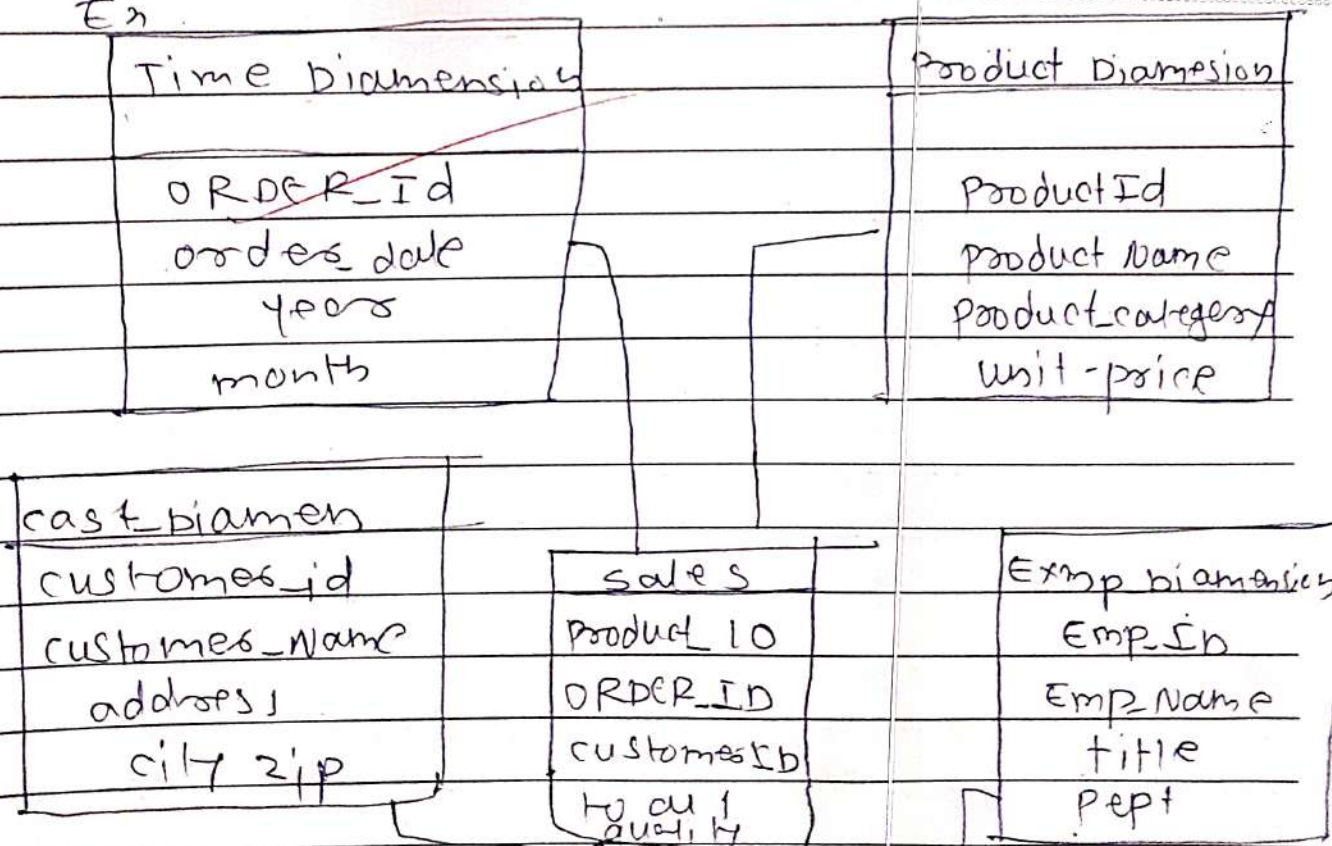 Ex
Time Diamension
ORDER_Id
order_date
year
month
Product Diamesion
Product Id
Product Name
Product_category
unit-price
cast_Diamen
customer_id
customer_Name
address
city zip
sales
Product_ID
ORDER_ID
customerID
total
Exmp_Diamension
Emp_ID
Emp_Name
title
Dept